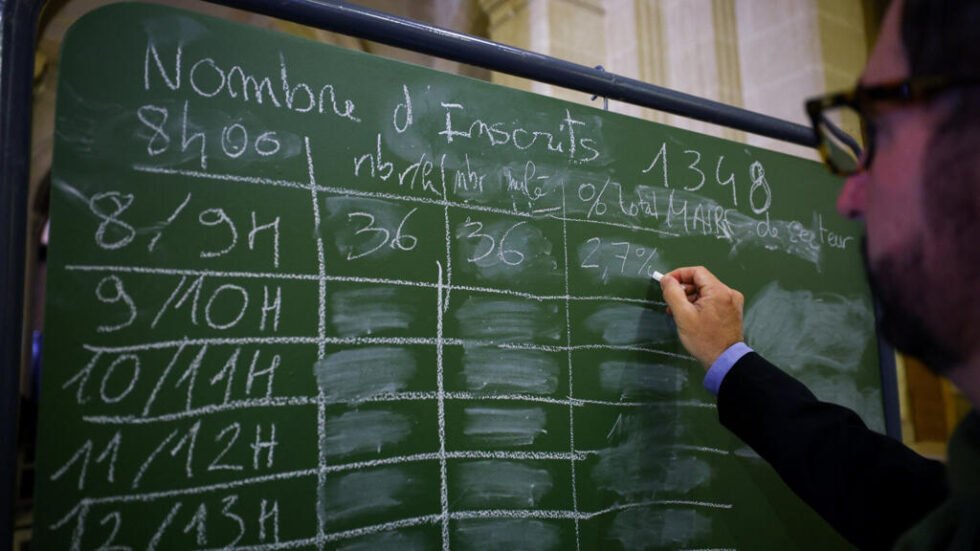 Nombre d'Inscrits 1348
8h00
nbr/h nbr % total MAIRE de secteur
8/9H 36 36 2,7%
9/10H
10/11H
11/12H
12/13H